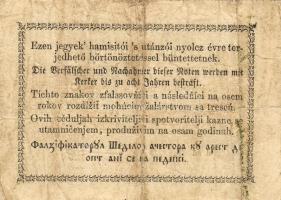 Ezen jegyek' hamisitói 's utánzói nyolcz évre ter-
jedhető börtönöztetéssel büntettetnek.
Die Verfälscher und Nachahmer dieser Noten werden mit
Kerker bis zu acht Jahren bestraft.
Tichto znakov zfalšovači a následňíci na osem
rokov rozúžiť mohúcím žalárstvom sa trescú.
Ovih ceduljah izkrivitelji i spotvoritelji kazne
utamničenjem, produživim na osam godinah.